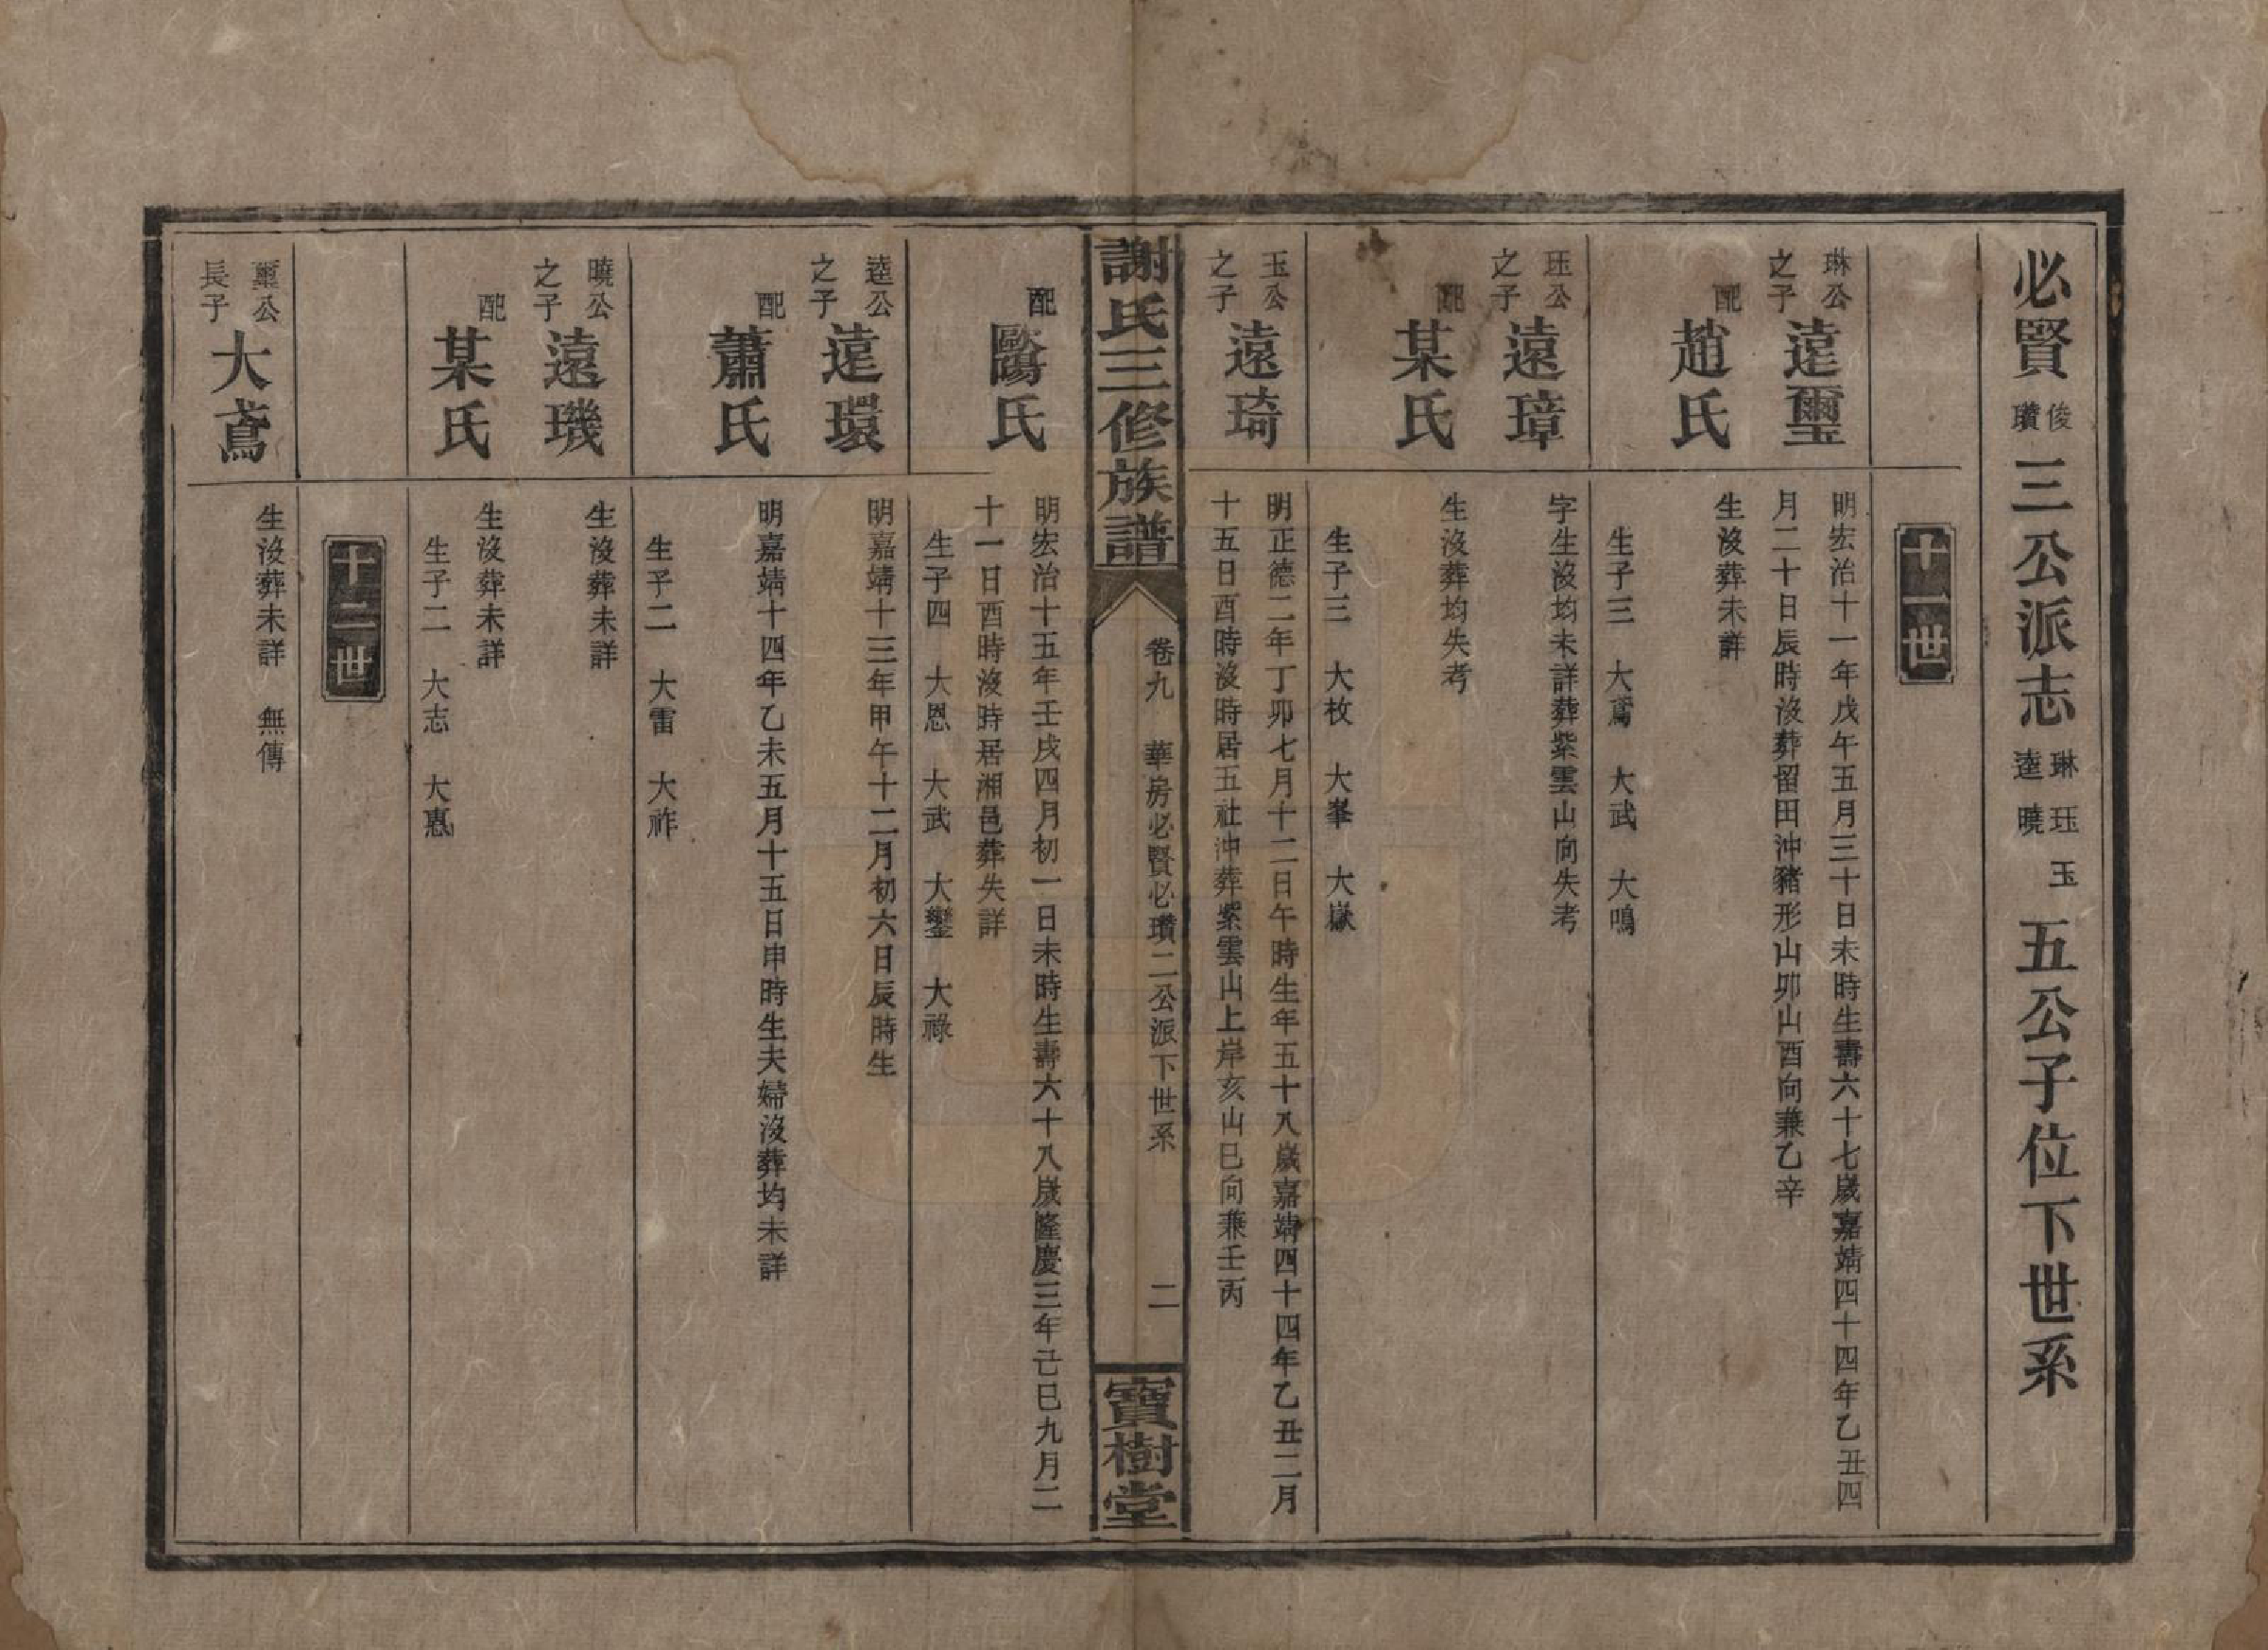 必賢俊瓚三公派志琳珏玉逵曉五公子位下世系
十一世
琳公之子
遠璽
明宏治十一年戊午五月三十日未時生壽六十七歲嘉靖四十四年乙丑四
月二十日辰時沒葬留田沖豬形山卯山酉向兼乙辛
配
趙氏
生沒葬未詳
生子三　大鳶　大武　大鳴
珏公之子
遠璋
字生沒均未詳葬紫雲山向失考
配
某氏
生沒葬均失考
生子三　大枚　大峯　大嶽
玉公之子
遠琦
明正德二年丁卯七月十二日午時生年五十八歲嘉靖四十四年乙丑二月
十五日酉時沒時居五社沖葬紫雲山上岸亥山巳向兼壬丙
謝氏三修族譜
卷九　華房必賢必瓚二公派下世系　二
寶樹堂
配
歐陽氏
明宏治十五年壬戌四月初一日未時生壽六十八歲隆慶三年己巳九月二
十一日酉時沒時居湘邑葬失詳
生子四　大恩　大武　大鑾　大祿
逵公之子
遠環
明嘉靖十三年甲午十二月初六日辰時生
配
蕭氏
明嘉靖十四年乙未五月十五日申時生夫婦沒葬均未詳
生子二　大雷　大祚
曉公之子
遠璣
生沒葬未詳
配
某氏
生沒葬未詳
生子二　大志　大惠
十二世
璽公長子
大鳶
生沒葬未詳　無傳